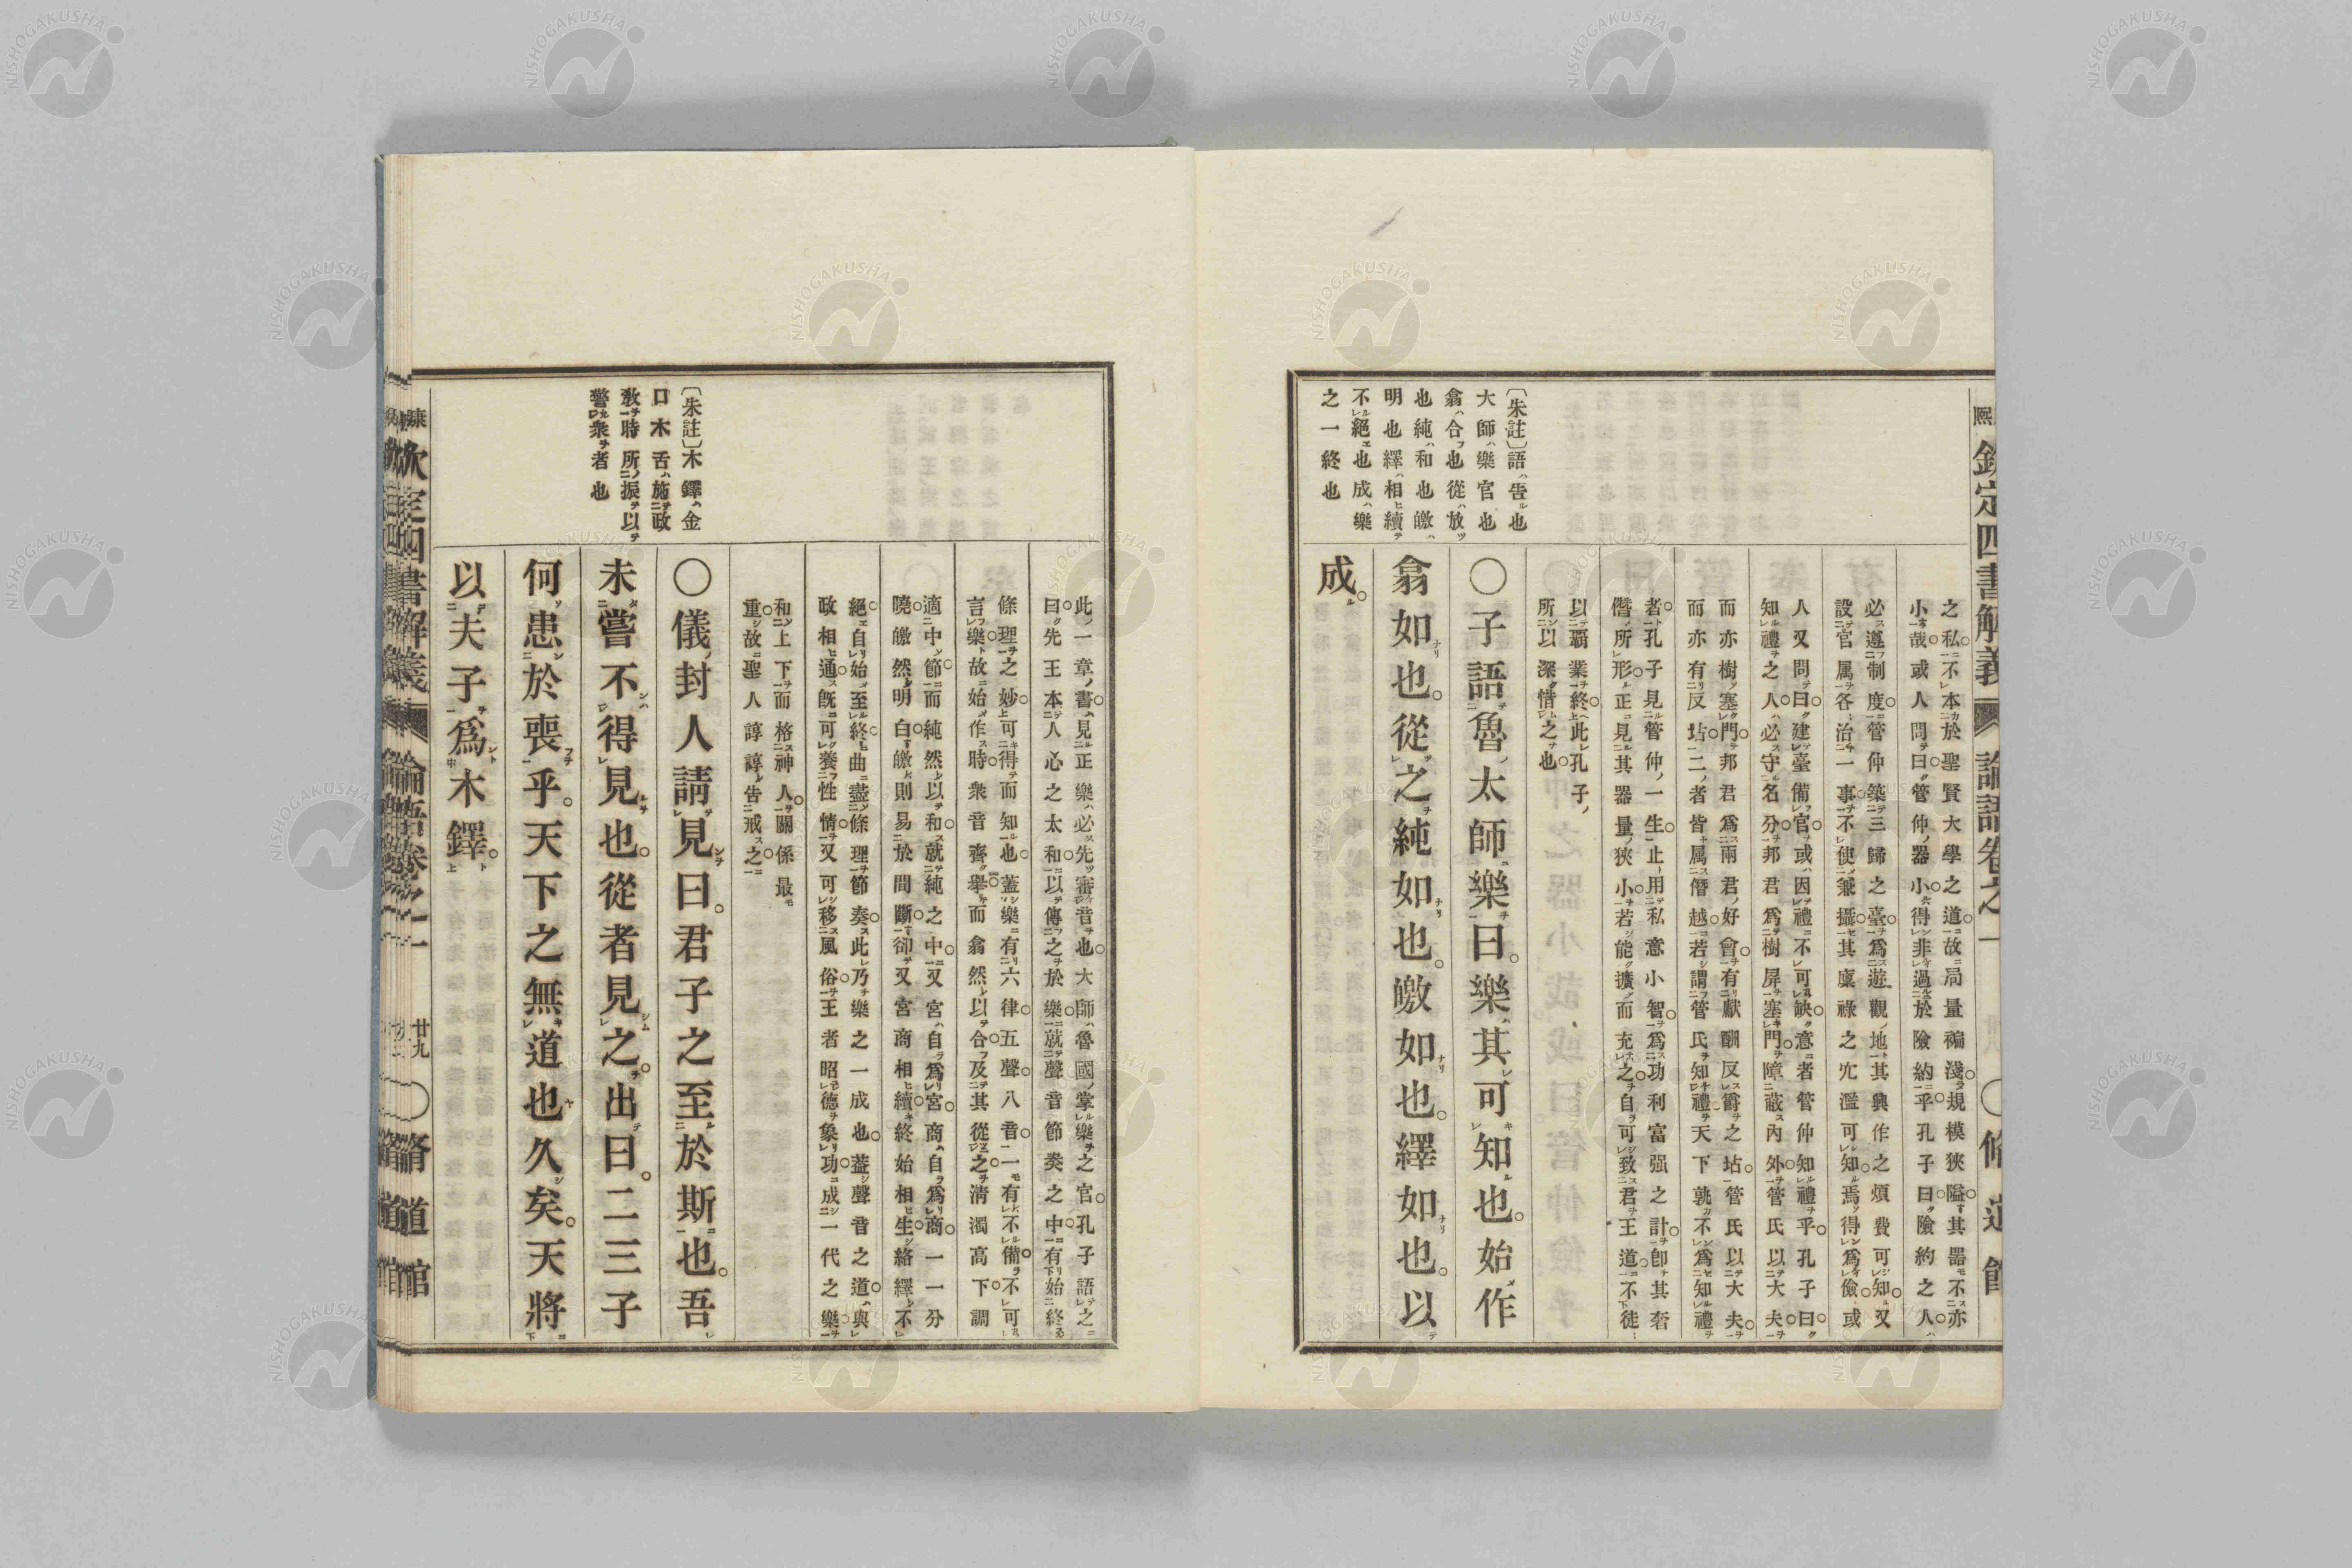 熙 欽定四書解義 論語卷之一 〇脩道館
之私不本於聖賢大學之道。故局量褊淺。規模狹隘。其器不亦
小哉。或人問曰。管仲器小。得非過於險約乎。孔子曰。險約之人。
必遵制度。管仲築三歸之臺。爲遊觀地其興作之煩費可知。又
設官属各治一事。不使兼攝。其廩祿之冗濫可知。焉得爲儉。或
人又問曰。建臺備官。或因禮不可缺。意者管仲知禮乎。孔子曰。
知禮之人。必守名分。邦君爲樹屏塞門。障蔽內外。管氏以大夫。
而亦樹塞門。邦君爲兩君好會。有獻酬反爵之坫。管氏以大夫。
而亦有反坫。二者皆属僭越。若謂管氏知禮。天下孰不爲知禮
者。孔子見管仲一生。止用私意小智。爲功利富强之計。卽其奢
僭所形。正見其器量狹小。若能擴而充之。自可致君王道。不徒
以覇業終。此孔子
所以深惜之也。
〔朱註〕語告也
大師樂官也
翕合也從放
也純和也皦
明也繹相續
不絕也成樂
之一終也
〇子語魯太師樂曰。樂其可知也。始作
翕如也。從之純如也。皦如也。繹如也。以
成。
此一章。書見正樂必先審音也。大師魯國掌樂之官。孔子語之
曰。先王本人心之太和。以傳之於樂。就聲音節奏之中。有始終
條理之妙。可得而知也。蓋樂有六律。五聲。八音。一有不備。不可
言樂。故始作時。衆音齊舉。而翕然以合。及其從之。淸濁高下。調
適中節。而純然以和。就純之中。又宮自爲宮。商自爲商。一一分
曉。皦然明白。皦則易於間斷。卻又宮商相續。終始相生。絡繹不
絕。自始至終。曲盡條理節奏。此乃樂之一成也。葢聲音之道。與
政相通。旣可養性情。又可移風俗。王者昭德象功。成一代之樂。
和上下而格神人。關係最
重。故聖人諄諄告戒之。
〔朱註〕木鐸金
口木舌施政
敎時所振以
警衆者也
〇儀封人請見曰。君子之至於斯也。吾
未嘗不得見也。從者見之。出曰。二三子
何患於喪乎。天下之無道也久矣。天將
以夫子爲木鐸。
欽定四書解義 論語卷之一 廿九 〇脩道館